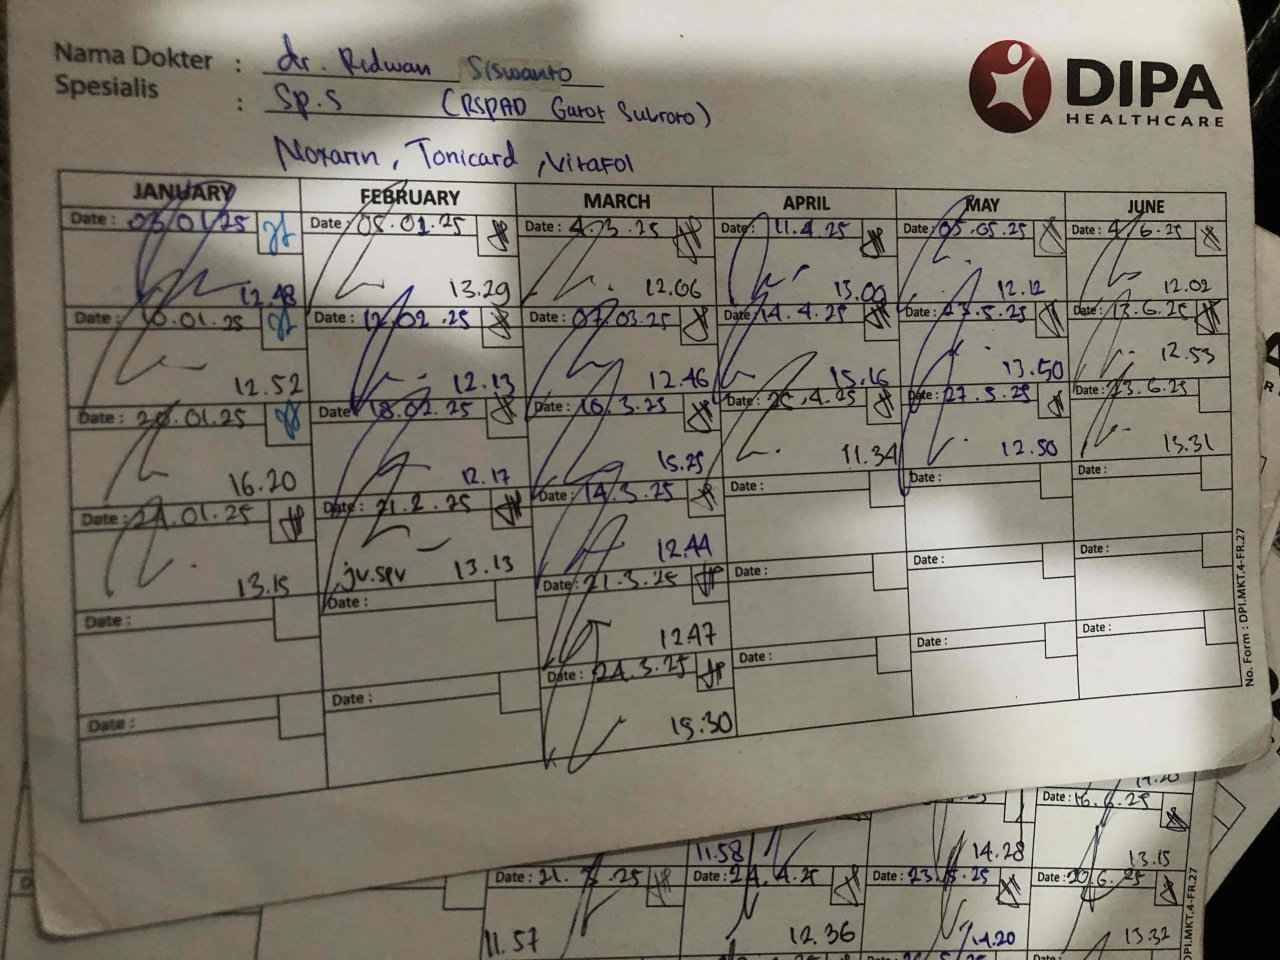 Nama Dokter : dr. Ridwan Siswanto
Spesialis : Sp.S (RSPAD Gatot Subroto)
DIPA
HEALTHCARE
Noxarin, Tonicard, Vitafol
JANUARY FEBRUARY MARCH APRIL MAY JUNE
Date : 03.01.25 Date : 05.02.25 Date : 4.3.25 Date : 11.4.25 Date : 05.05.25 Date : 4.6.25
12.48 13.29 12.06 13.09 12.12 12.02
Date : 10.01.25 Date : 12.02.25 Date : 07.03.25 Date : 14.4.25 Date : 23.5.25 Date : 13.6.25
12.52 12.13 12.46 15.16 13.50 12.53
Date : 20.01.25 Date : 18.02.25 Date : 10.3.25 Date : 25.4.25 Date : 27.5.25 Date : 23.6.25
16.20 12.17 15.25 11.34 12.50 13.31
Date : 24.01.25 Date : 21.2.25 Date : 14.3.25 Date : Date : Date :
13.15 jv.spv 13.13 12.44
Date : Date : Date : 21.3.25 Date : Date : Date :
12.47
Date : Date : Date : 24.3.25 Date : Date : Date :
15.30
No. Form : DPI.MKT.4-FR.27
14.20
Date : 16.6.25
11.58 14.28 13.15
Date : 21.3.25 Date : 24.4.25 Date : 23.5.25 Date : 20.6.25
11.57 12.36 14.20 13.32
DPI.MKT.4-FR.27